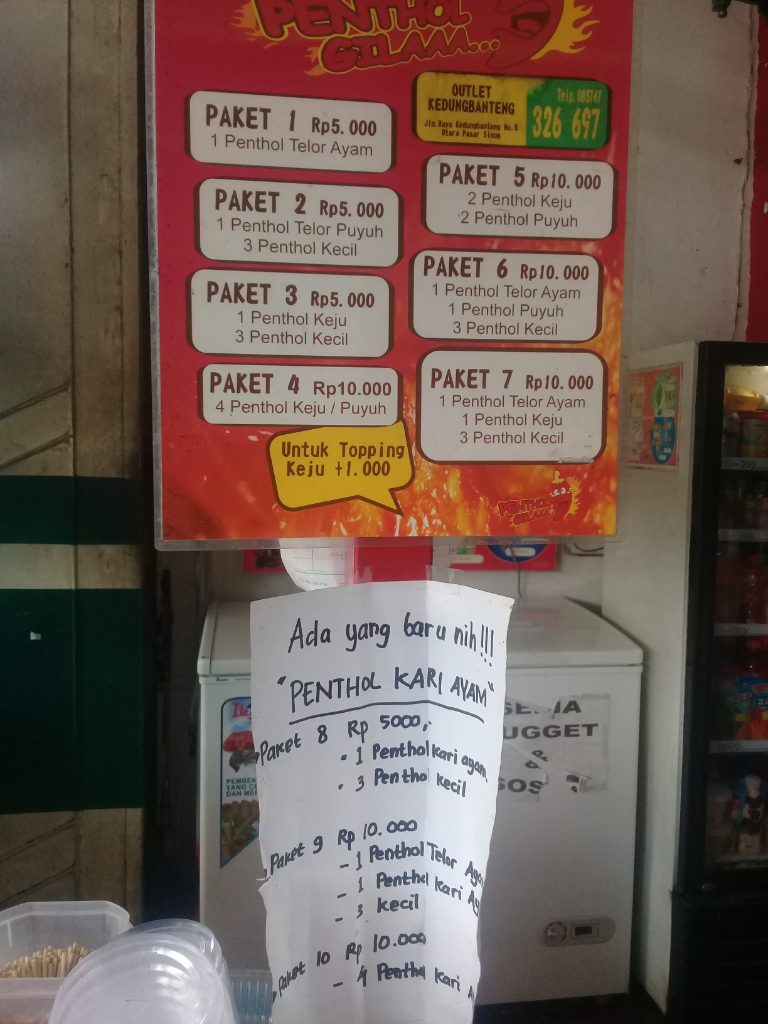 PENTHOL
GILAAA...
OUTLET
KEDUNGBANTENG
Jln. Raya Kedungbanteng No.
Utara Pasar Sinom
Telp. 085747
326 697
PAKET 1 Rp5.000
1 Penthol Telor Ayam
PAKET 2 Rp5.000
1 Penthol Telor Puyuh
3 Penthol Kecil
PAKET 3 Rp5.000
1 Penthol Keju
3 Penthol Kecil
PAKET 4 Rp10.000
4 Penthol Keju / Puyuh
Untuk Topping
Keju +1.000
PAKET 5 Rp10.000
2 Penthol Keju
2 Penthol Puyuh
PAKET 6 Rp10.000
1 Penthol Telor Ayam
1 Penthol Puyuh
3 Penthol Kecil
PAKET 7 Rp10.000
1 Penthol Telor Ayam
1 Penthol Keju
3 Penthol Kecil
PENTHOL
Ada yang baru nih!!!
"PENTHOL KARI AYAM"
Paket 8 Rp 5000,-
• 1 Penthol kari ayam
• 3 Penthol kecil
Paket 9 Rp 10.000
- 1 Penthol Telor Ay
- 1 Penthol Kari Ay
- 3 kecil
Paket 10 Rp 10.000
- 4 Penthol Kari A
UGGET
SOS
PEMBEK
YANG CU
DAN ME